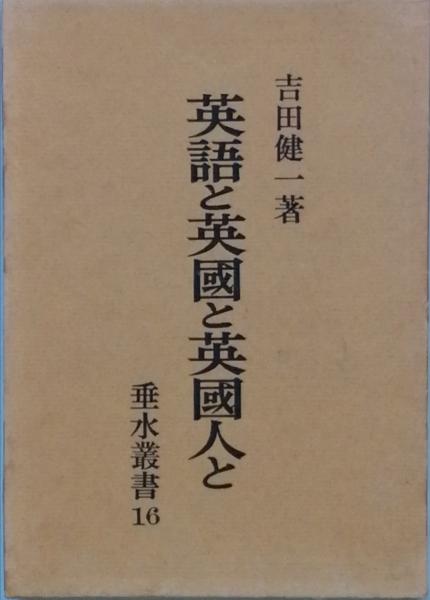 吉田健一著
英語と英國と英國人と
垂水叢書16